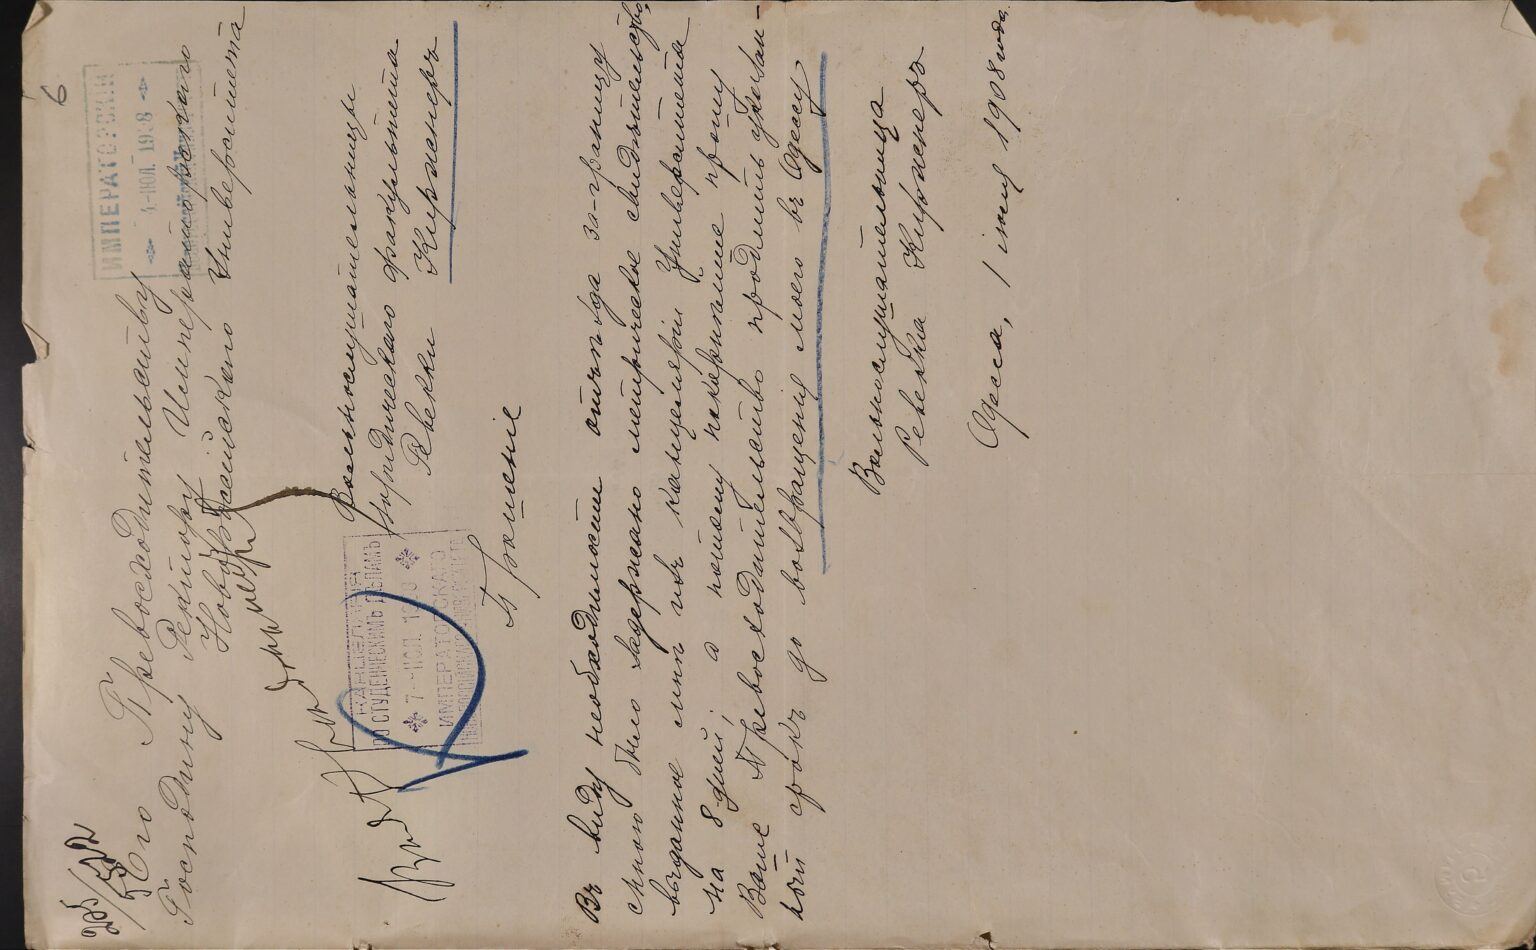 6
ИМПЕРАТОРСКІЙ
4-ІЮЛ. 1908
Его Превосходительству
Господину Ректору Императорскаго
Новороссійскаго Университета
вольнослушательницы
юридическаго факультета
Ревекки Киржнеръ
КАНЦЕЛЯРІЯ
ПО СТУДЕНЧЕСКИМЪ ДѢЛАМЪ
7-ІЮЛ. 1908
ИМПЕРАТОРСКАГО
Прошеніе
Въ виду необходимости отъѣзда за-границу
мною было задержано метрическое свидѣтельство,
выданное мнѣ изъ канцеляріи Университета
на 8 дней; а потому покорнѣйше прошу
Ваше Превосходительство продлить указан-
ный срокъ до возвращенія моего въ Одессу
Вольнослушательница
Ревекка Киржнеръ
Одесса, 1 іюля 1908 года